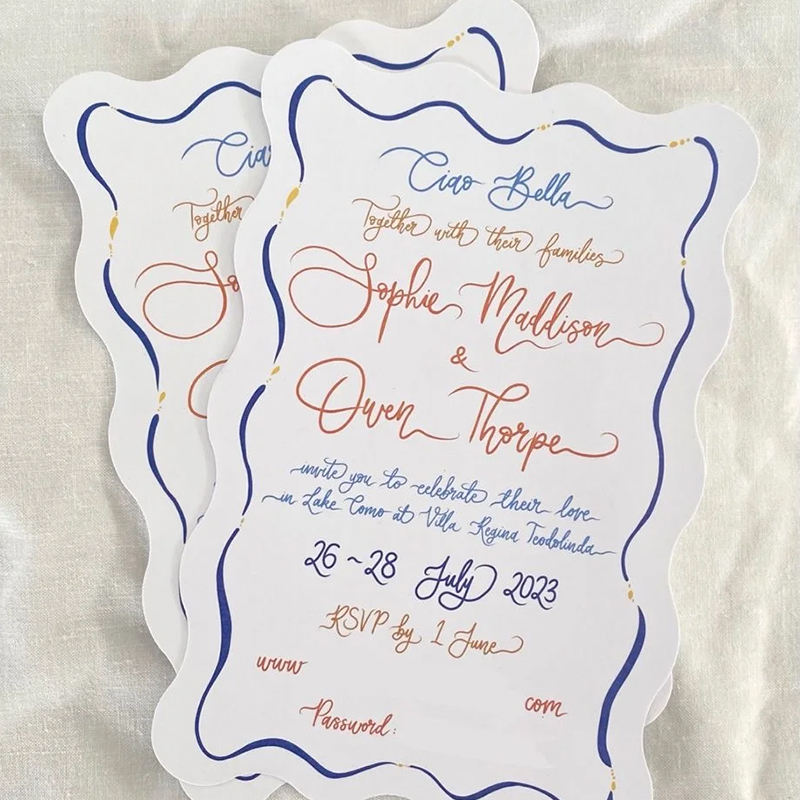 Ciao Bella
Together with their families
Sophie Maddison
&
Owen Thorpe
invite you to celebrate their love
in Lake Como at Villa Regina Teodolinda
26 ~ 28 July 2023
RSVP by 1 June
www
com
Password:
Cia
Together
So